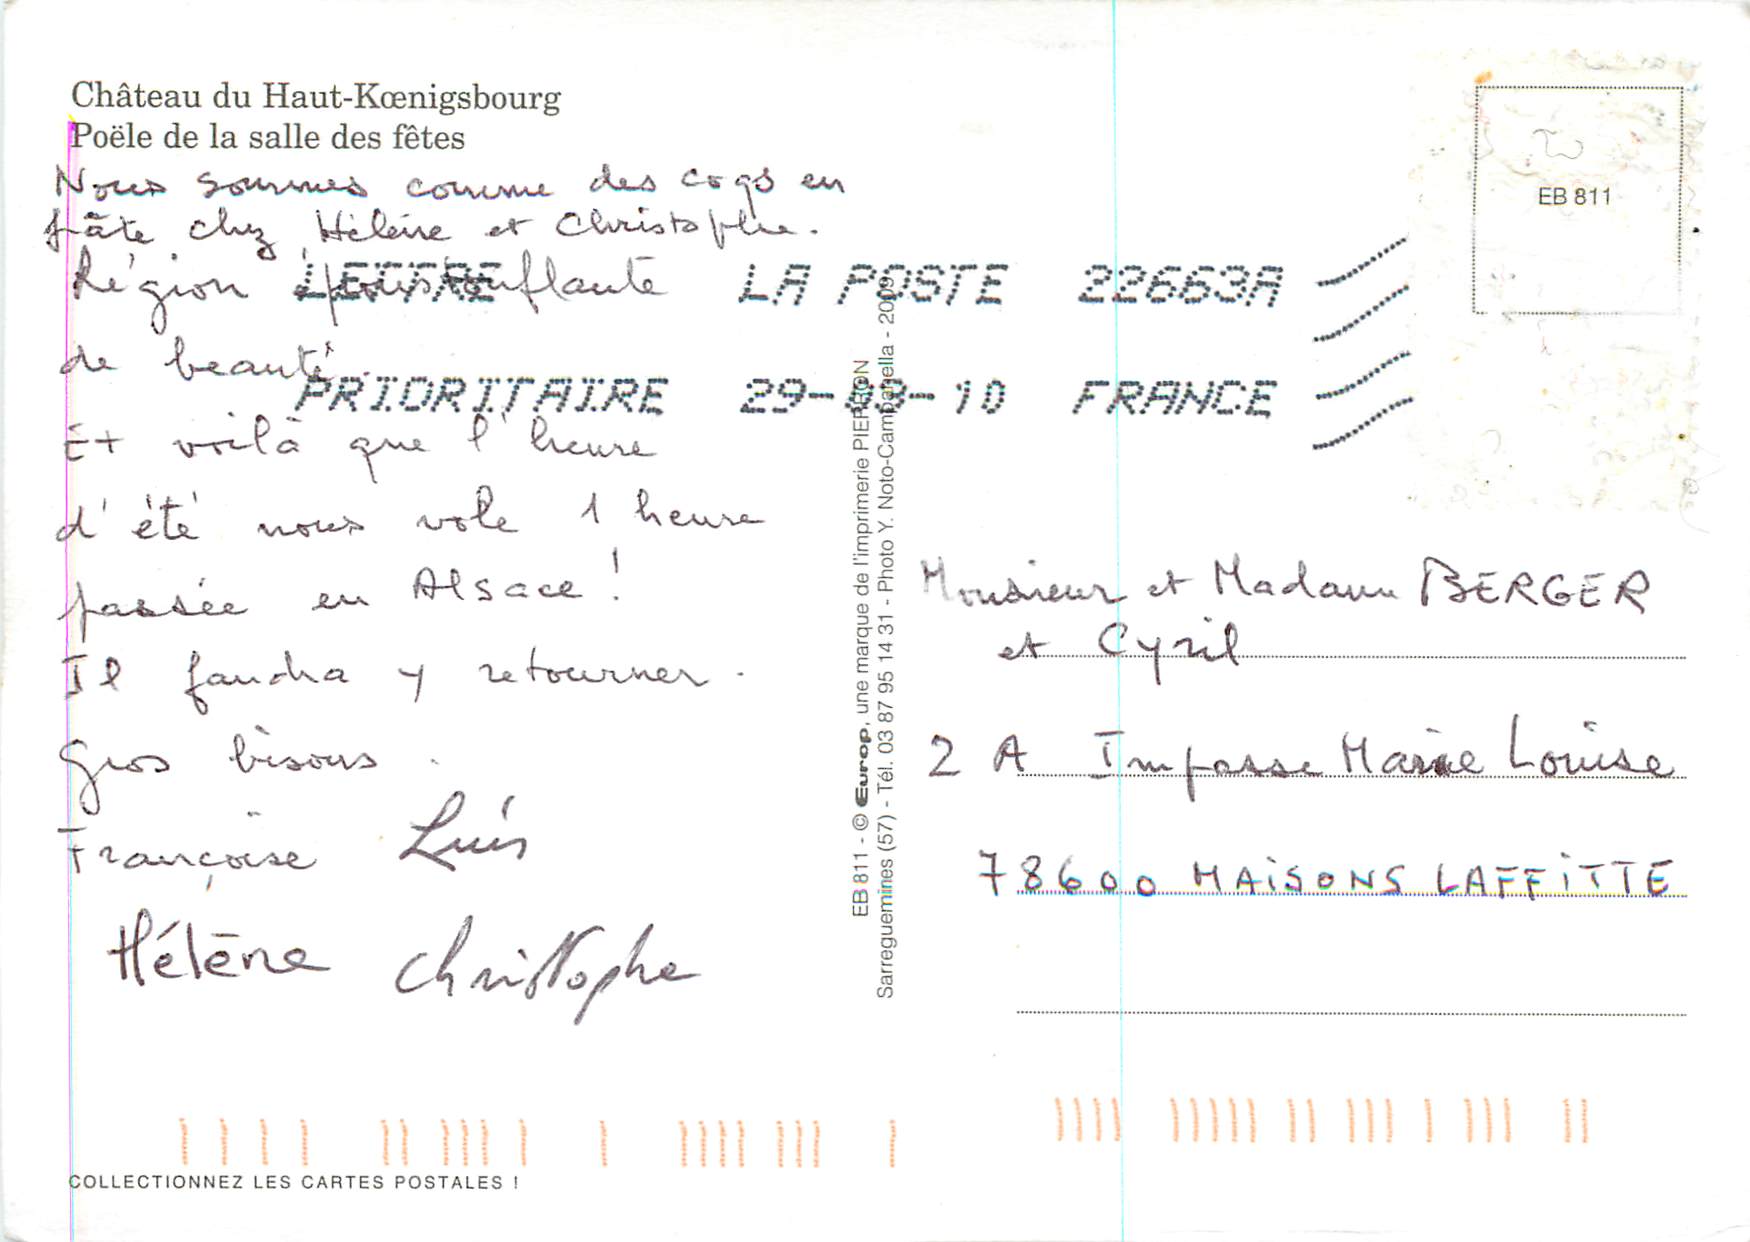 Château du Haut-Kœnigsbourg
Poële de la salle des fêtes
Nous sommes comme des coqs en
pâte chez Hélène et Christophe.
Région époustouflante
de beauté.
Et voilà que l'heure
d'été nous vole 1 heure
passée en Alsace !
Il faudra y retourner.
Gros bisous.
Françoise Luis
Hélène Christophe
COLLECTIONNEZ LES CARTES POSTALES !
LETTRE LA POSTE 22663A
PRIORITAIRE 29-03-10 FRANCE
EB 811 - © Europ, une marque de l'imprimerie PIERRON
Sarreguemines (57) - Tél. 03 87 95 14 31 - Photo Y. Noto-Campanella - 2009
EB 811
Monsieur et Madame BERGER
et Cyril
2 A Impasse Marie Louise
78600 MAISONS LAFFITTE